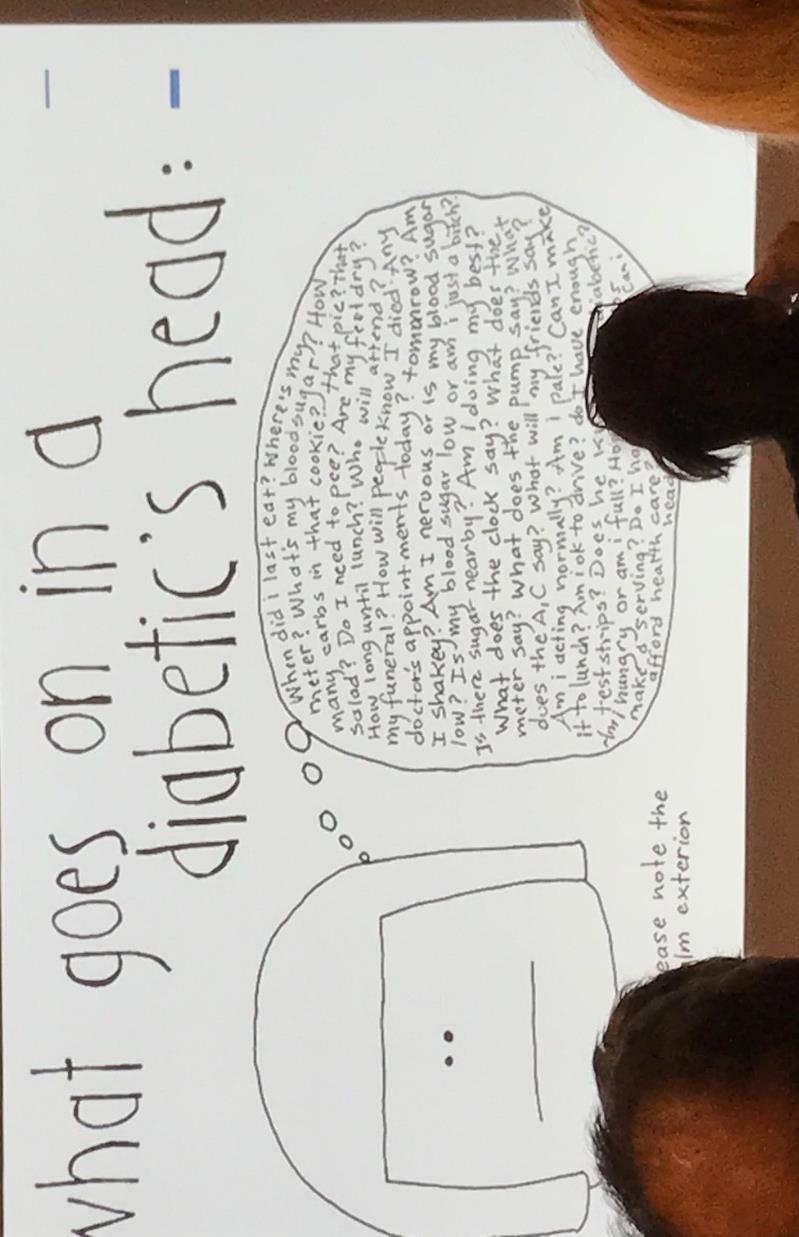 what goes on in a
diabetic's head:
When did i last eat? Where's my
meter? What's my bloodsugar? How
many carbs in that cookie? that pie? that
salad? Do I need to pee? Are my feet dry?
How long until lunch? Who will attend
my funeral? How will people know I died? Any
doctor's appointments today? tomorrow? Am
I shakey? Am I nervous or is my blood sugar
low? Is my blood sugar low or am i just a bitch?
Is there sugar nearby? Am I doing my best?
What does the clock say? What does the
meter say? What does the pump say? What
does the A1C say? What will my friends say?
Am i acting normally? Am I pale? Can I make
it to lunch? Am i ok to drive? do I have enough
test strips? Does he diabetic?
hungry or am i full?
make d serving? Do I can i
afford health care?
head
ease note the
lm exterior